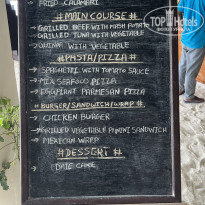 FRIED CALAMERI
# MAIN COURSE #
→ GRILLED BEEF WITH MASH POTATO
GRILLED TUNA WITH VEGETABLE
→ GUINAR WITH VEGETABLE
# PASTA/PIZZA #
→ SPAGHETTI WITH TOMATO SAUCE
→ MIX SEAFOOD PIZZA
→ EGGPLANT PARMESAN PIZZA
# BURGER/SANDWICH/WRAP #
→ CHICKEN BURGER
→ GRILLED VEGETABLE PANINI SANDWICH
→ MEXICAN WRAP
# DESSERT #
→ DATE CAKE
TopHotels